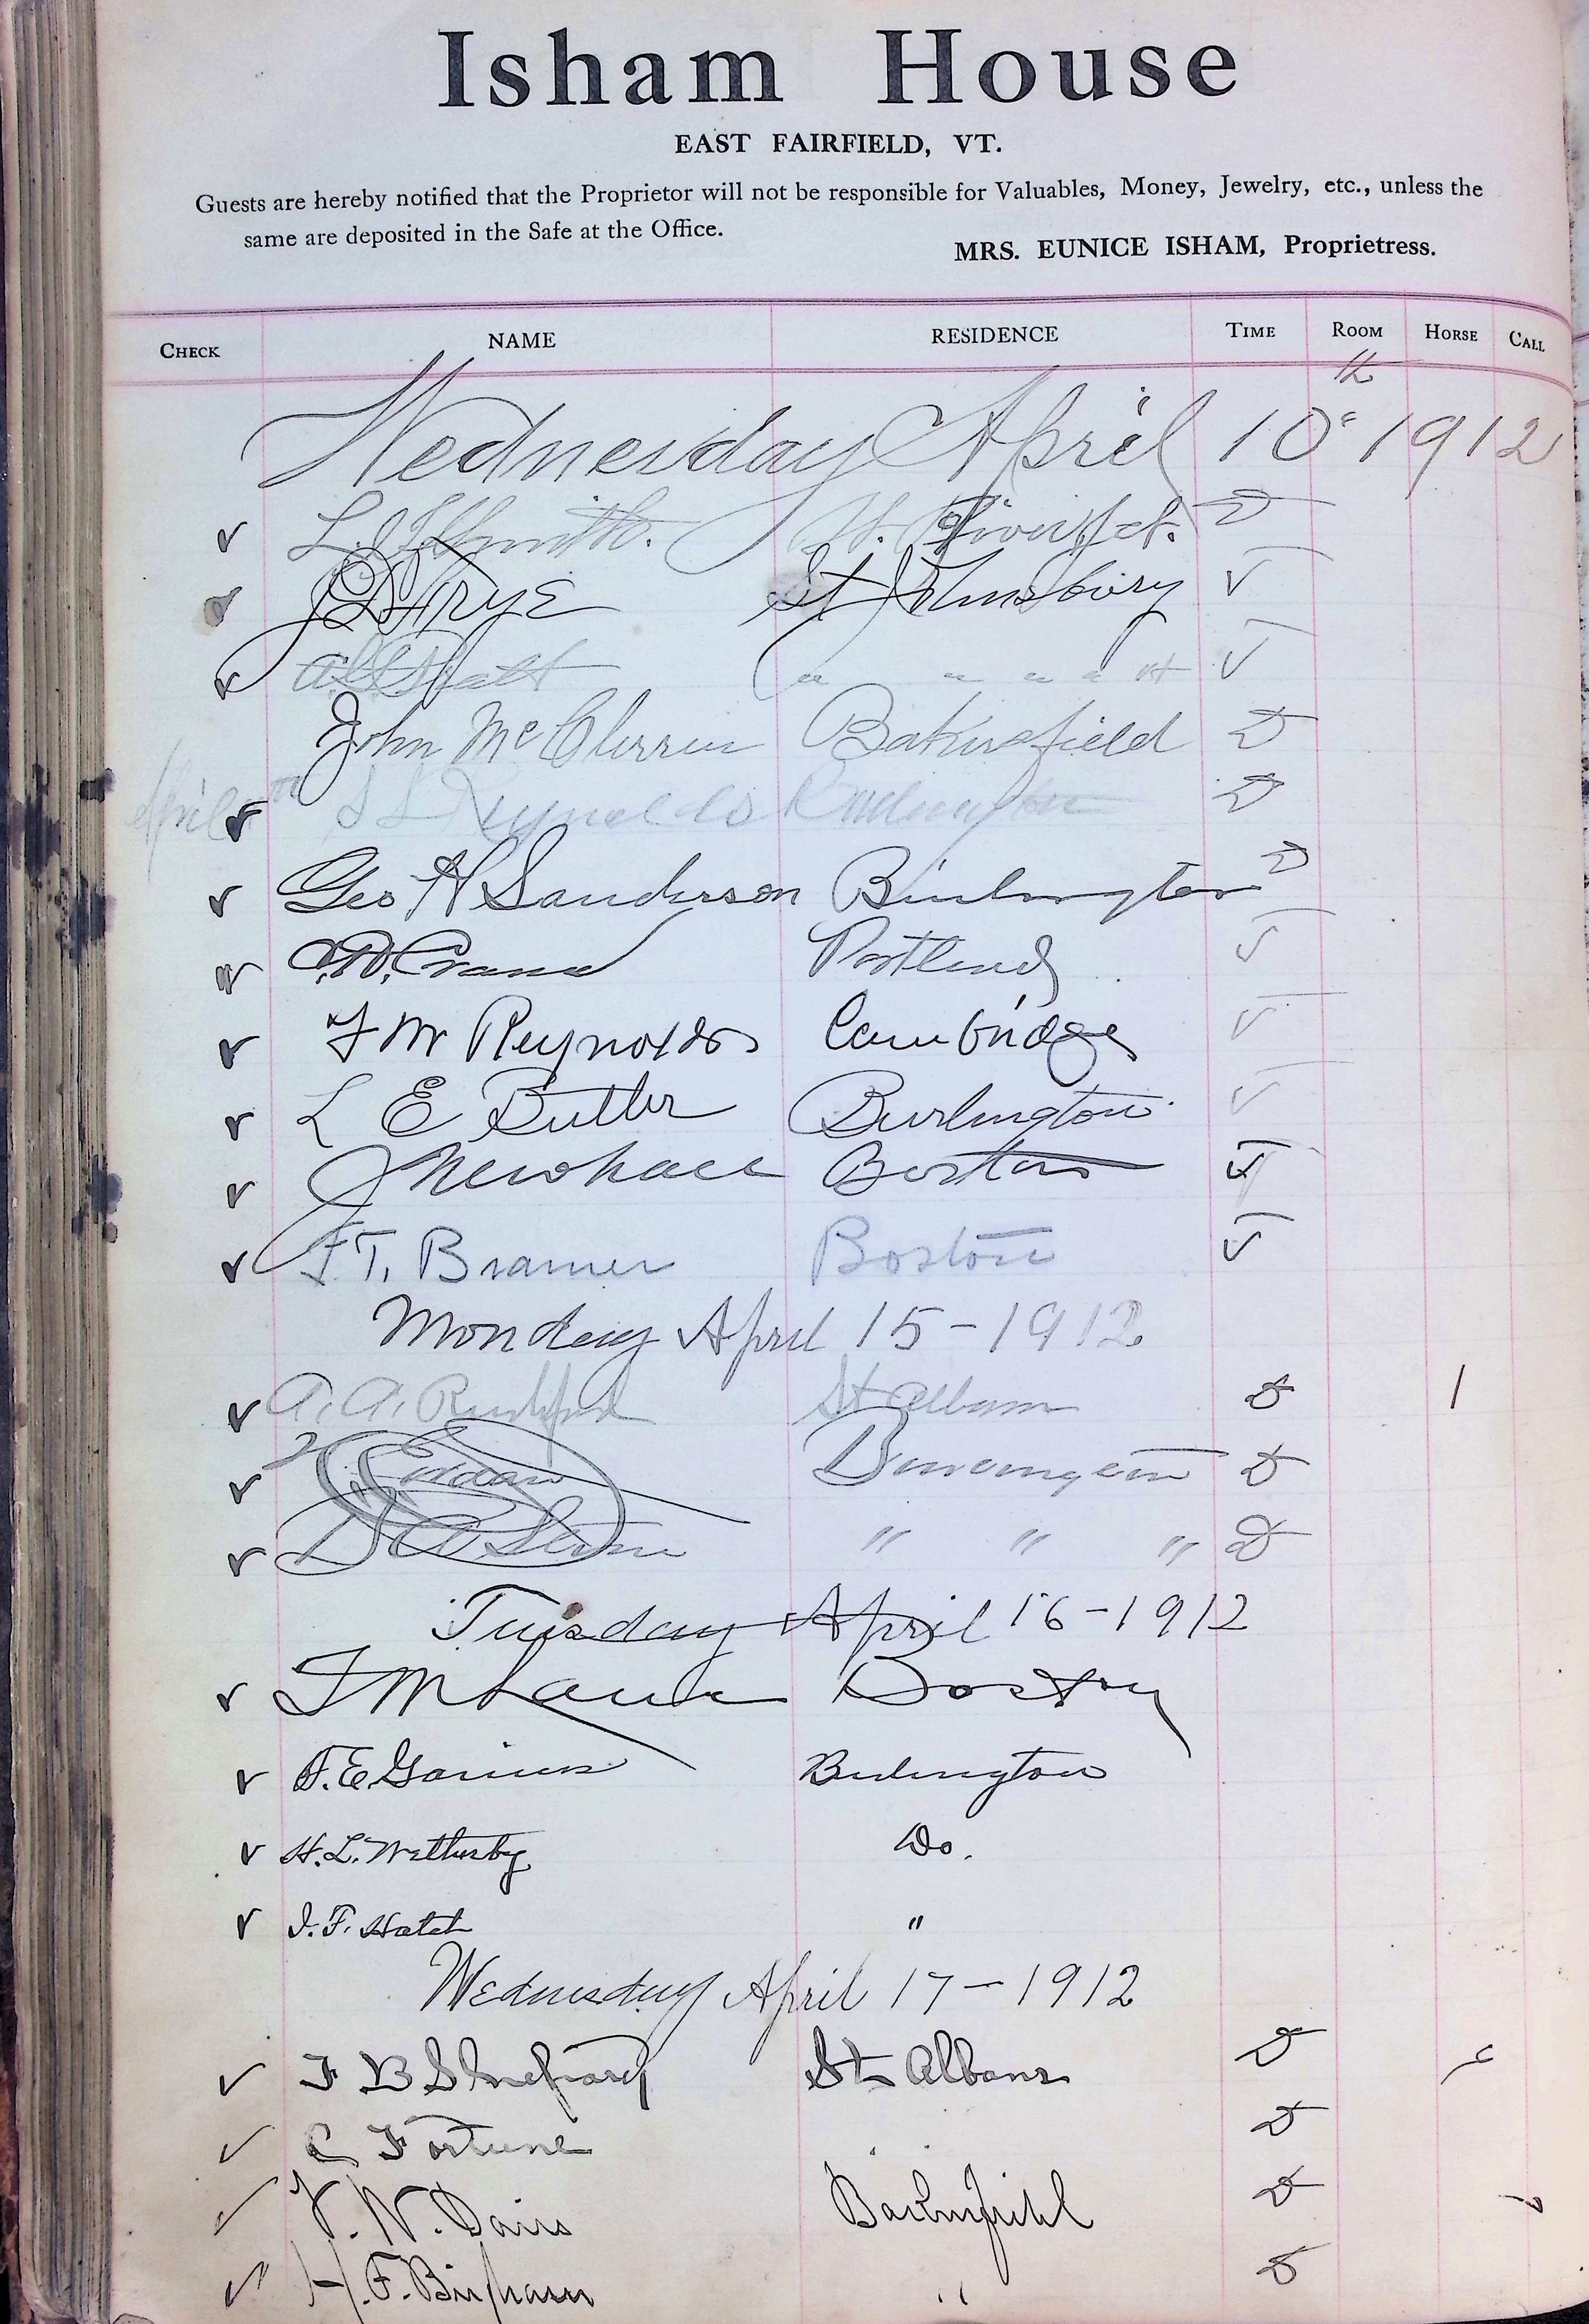 Isham House
EAST FAIRFIELD, VT.
Guests are hereby notified that the Proprietor will not be responsible for Valuables, Money, Jewelry, etc., unless the
same are deposited in the Safe at the Office.
MRS. EUNICE ISHAM, Proprietress.
CHECK NAME RESIDENCE TIME ROOM HORSE CALL
Wednesday April 10th 1912
Smith.
Frye St Johnsbury
John Bakersfield D
April Reynolds Burlington D
Geo H Sanderson Burlington D
Crane Portland
F M Reynolds Cambridge
L E Butler Burlington
J Newhall Boston
F.T. Bramer Boston
Monday April 15-1912
A. A. St Albans D 1
Burlington D
" " " D
Tuesday April 16-1912
Boston
F.E. Burlington
H.L. Wetherby Do.
I.F. Hatch "
Wednesday April 17-1912
F B Shepard St Albans D
C Fortune D
V. N. Davis Bakersfield D
H.F. Bingham " D